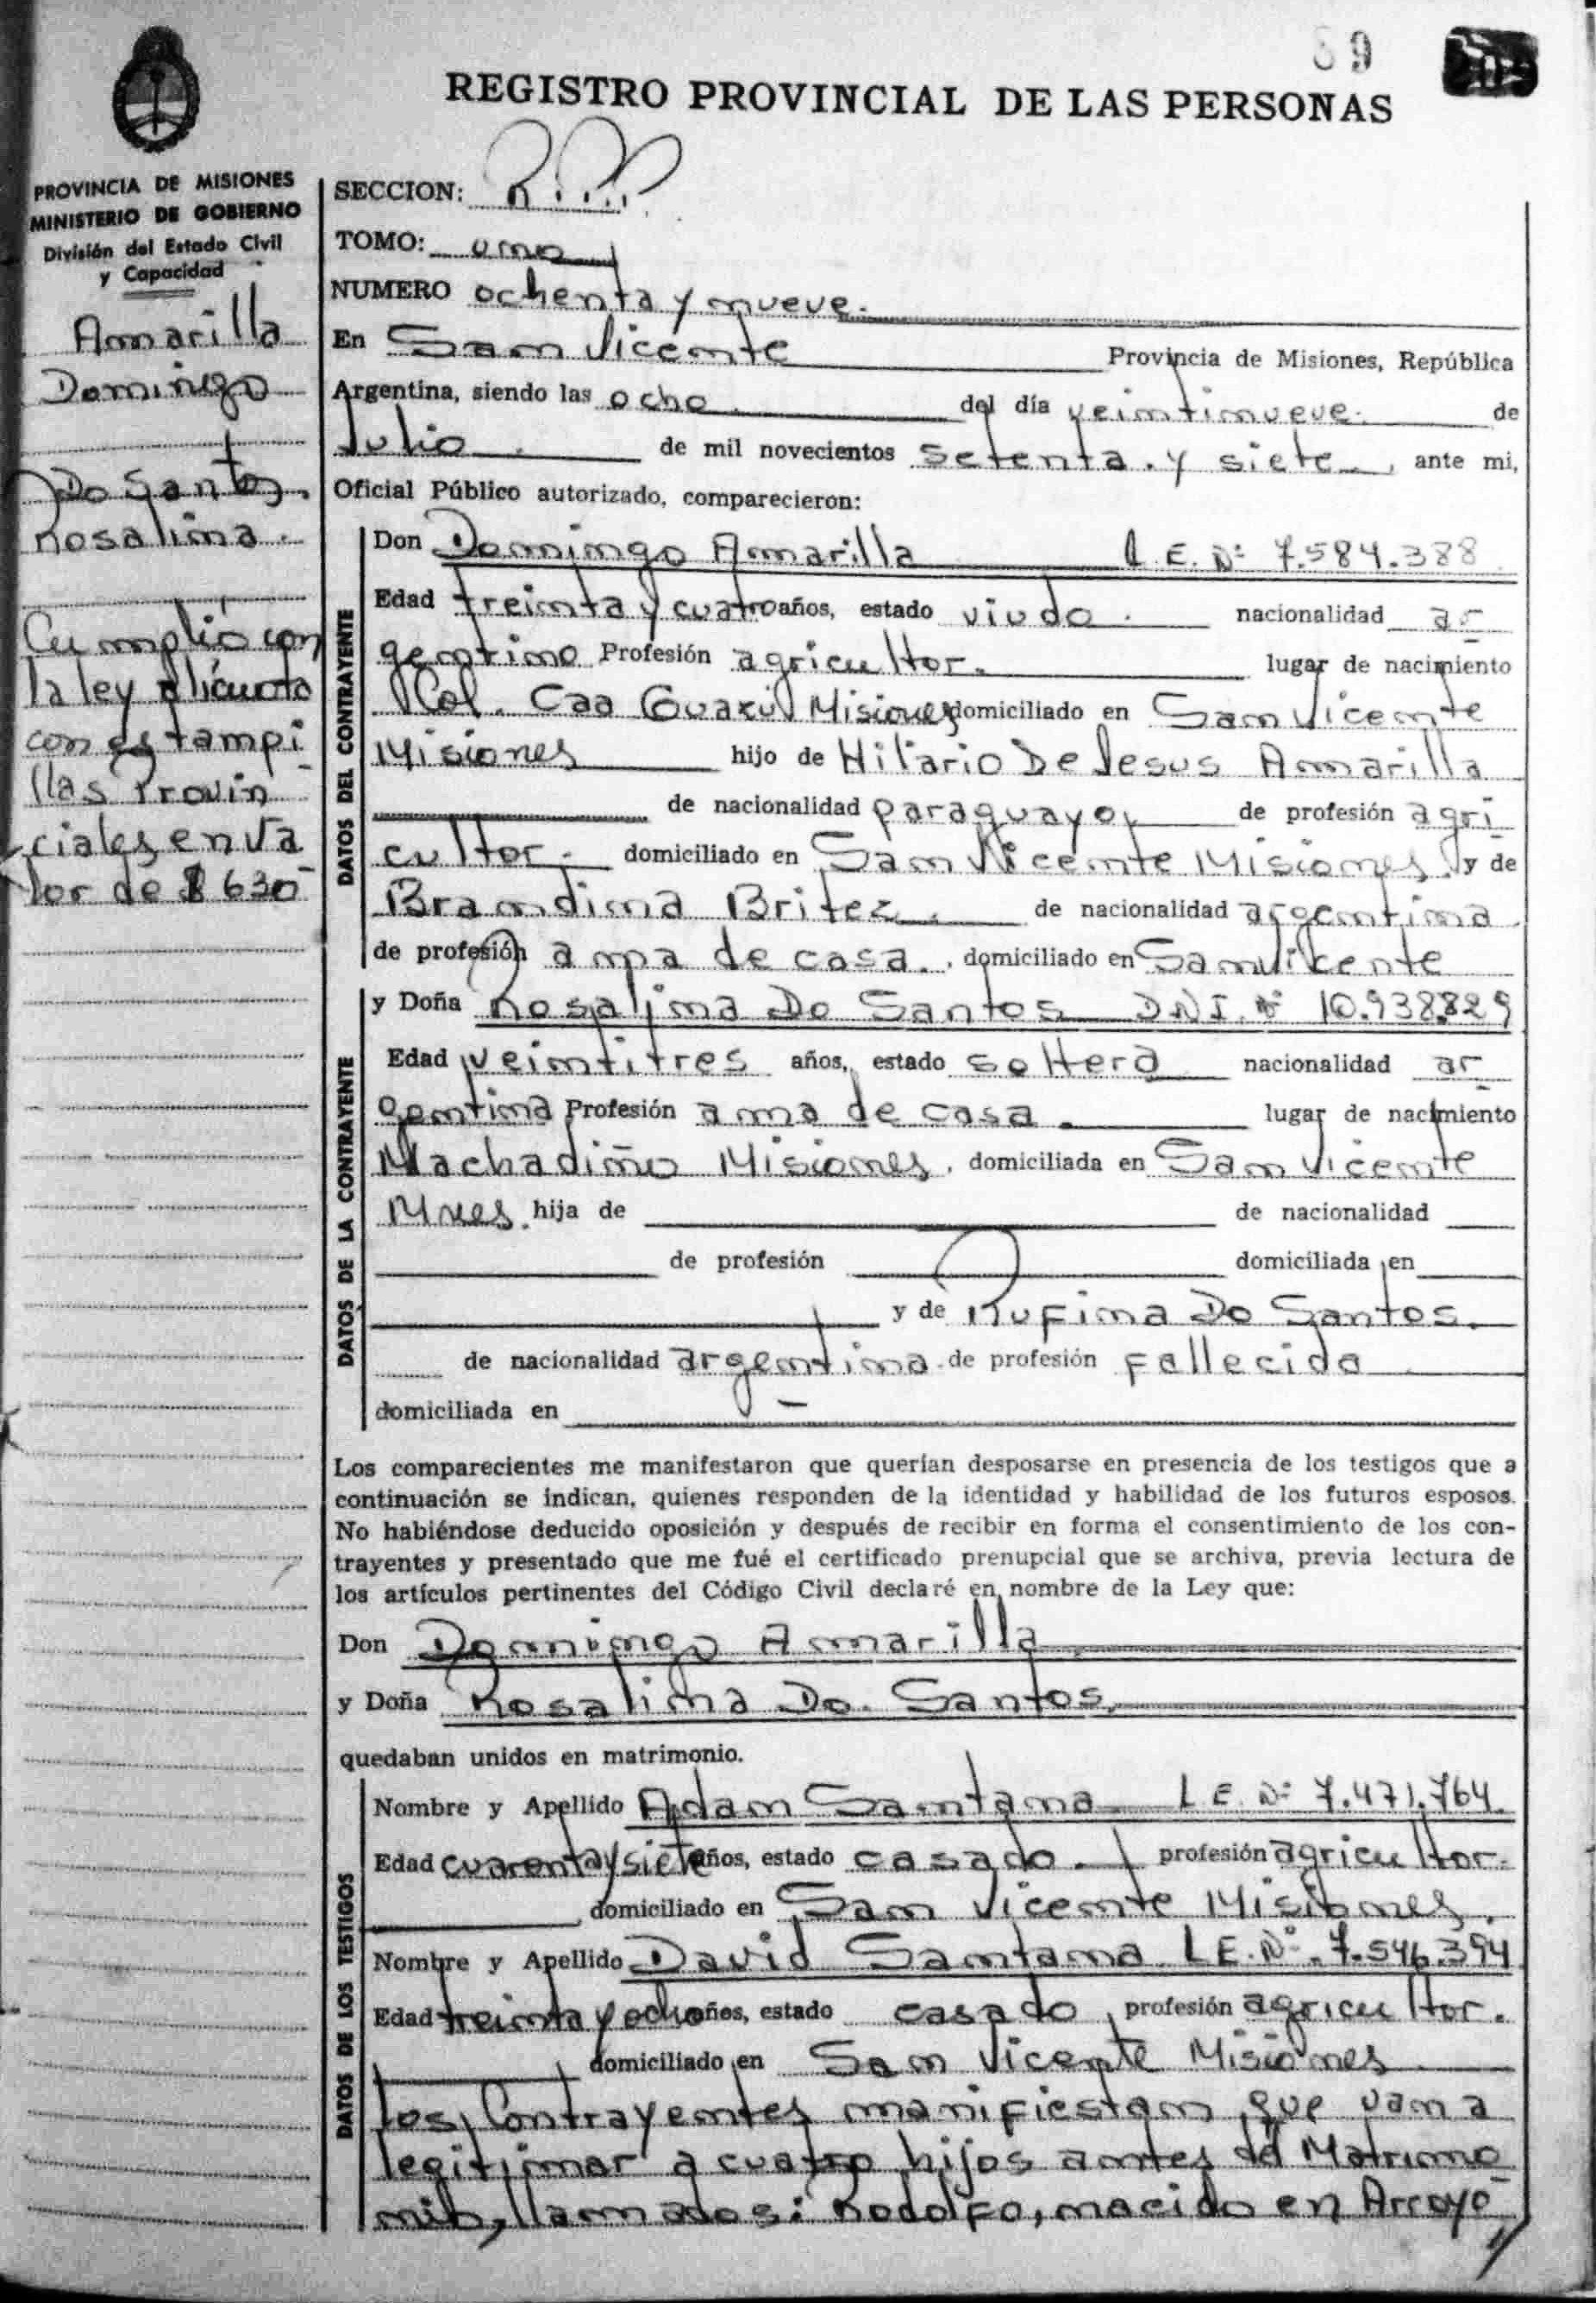 89
REGISTRO PROVINCIAL DE LAS PERSONAS
PROVINCIA DE MISIONES
MINISTERIO DE GOBIERNO
División del Estado Civil
y Capacidad
Amarilla
Domingo
Do Santos.
Rosalina.
Cumplió con
la ley alicuota
con estampi
llas Provin
ciales en va
lor de $ 630
SECCION:
TOMO: uno
NUMERO ochenta y nueve.
En San Vicente Provincia de Misiones, República
Argentina, siendo las ocho del día veintinueve. de
Julio. de mil novecientos setenta. y siete, ante mi,
Oficial Público autorizado, comparecieron:
DATOS DEL CONTRAYENTE
Don Domingo Amarilla L.E. Nº 7.584.388
Edad treinta y cuatro años, estado viudo. nacionalidad ar
gentino Profesión agricultor. lugar de nacimiento
Col. Caa Guazú Misiones domiciliado en San Vicente
Misiones hijo de Hilario De Jesus Amarilla
de nacionalidad paraguayo, de profesión agri
cultor. domiciliado en San Vicente Misiones. y de
Brandina Britez. de nacionalidad argentina.
de profesión ama de casa., domiciliado en San Vicente
DATOS DE LA CONTRAYENTE
y Doña Rosalina Do Santos DNI. Nº 10.938.829
Edad veintitres años, estado soltera nacionalidad ar
gentina Profesión ama de casa. lugar de nacimiento
Machadiño Misiones, domiciliada en San Vicente
Mnes. hija de de nacionalidad
de profesión domiciliada en
y de Rufina Do Santos.
de nacionalidad argentina. de profesión fallecida
domiciliada en
Los comparecientes me manifestaron que querían desposarse en presencia de los testigos que a
continuación se indican, quienes responden de la identidad y habilidad de los futuros esposos.
No habiéndose deducido oposición y después de recibir en forma el consentimiento de los con-
trayentes y presentado que me fué el certificado prenupcial que se archiva, previa lectura de
los artículos pertinentes del Código Civil declaré en nombre de la Ley que:
Don Domingo Amarilla
y Doña Rosalina Do. Santos.
quedaban unidos en matrimonio.
DATOS DE LOS TESTIGOS
Nombre y Apellido Adam Santana L E Nº 7.471.764.
Edad cuarenta y siete años, estado casado. profesión agricultor.
domiciliado en San Vicente Misiones.
Nombre y Apellido David Santana L.E. Nº. 7.546.394
Edad treinta y ocho años, estado casado, profesión agricultor.
domiciliado en San Vicente Misiones
los Contrayentes manifiestan que van a
legitimar a cuatro hijos antes del Matrimo
nio, llamados: Rodolfo, nacido en Arroyo